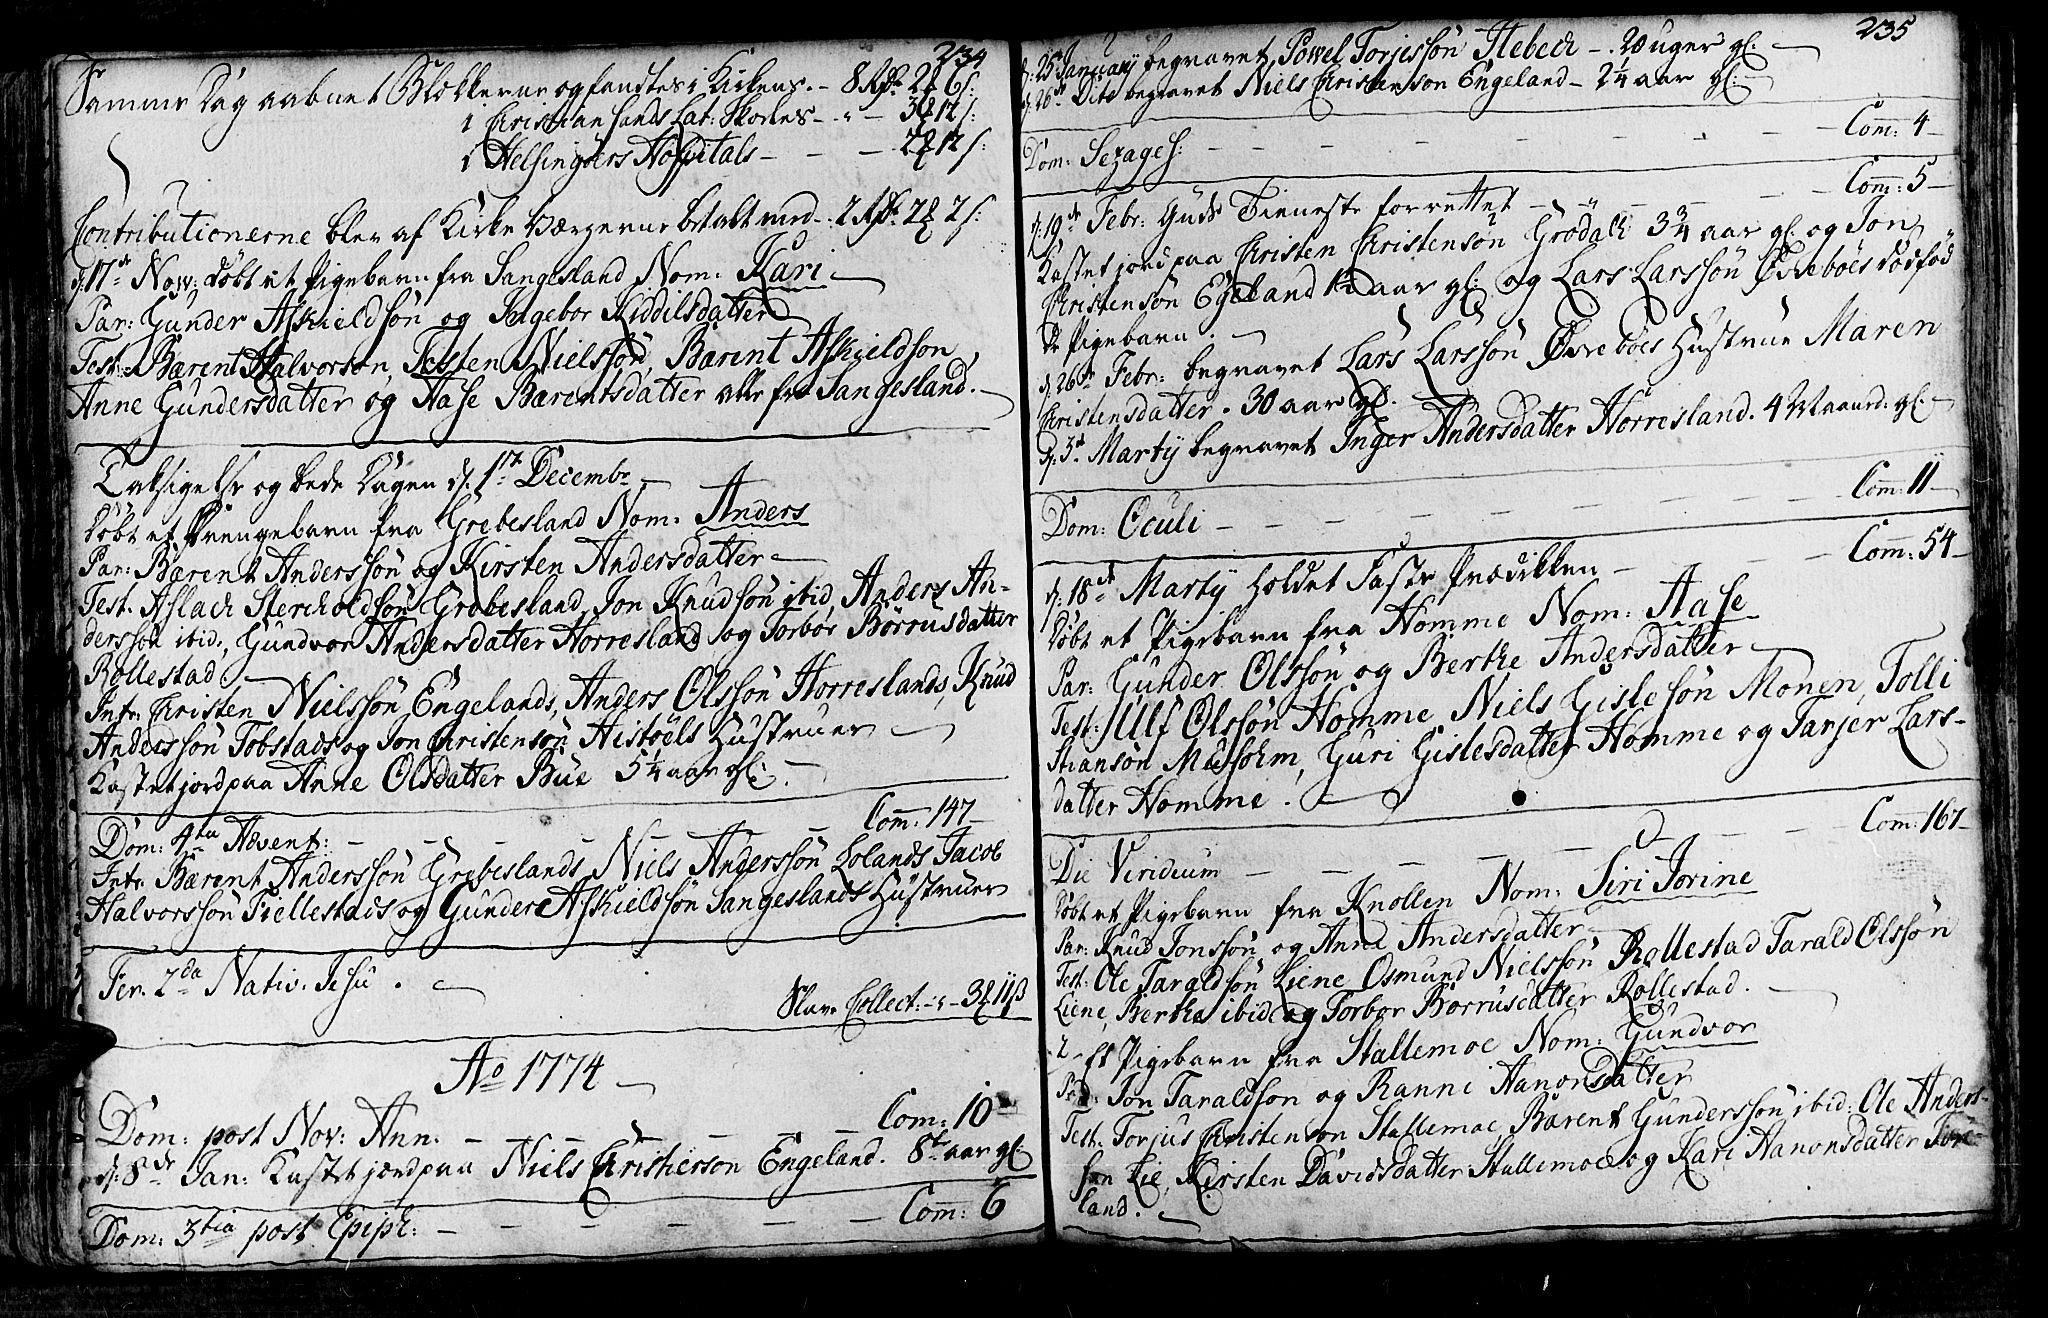 234
Samme Dag aabnet Blokkerne og fandtes i Kirkens. - 8 Rdr 2 6 s:
i Christiansands Lat: Skoeles - " - 3 12 s:
i Helsingøers Hospitals - - - 2 12 s:
Contributionerne blev af Kirke Værgerne betalt med - 2 Rdr. 2 2 s:
d: 17de Nov: døbt et Pigebarn fra Sangesland Nom: Kari
Par: Gunder Askieldsøn og Ingebor Kiddilsdatter
Test: Bærent Halvorson, Testen Nielssøn, Bærent Askieldson,
Anne Gundersdatter og Aase Bærentsdatter alle fra Sangesland.
Taksigelse og bede Dagen d. 1te Decembr
Døbt et Drengebarn fra Grebesland Nom. Anders
Par: Bærent Anderssøn og Kirsten Andersdatter
Test. Aslach Stercholdsøn Grebesland, Jon Knudsøn ibid, Anders An-
derssøn ibid., Gundvor Andersdatter Horresland og Torbor Børrusdatter
Rollestad.
Intr. Christen Nielssøn Engelands, Anders Olssøn Horreslands, Knud
Anderssøn Tobstads og Jon Christensøn Aistøels Hustruer
Kastet jord paa Anne Olsdatter Bue 5 1/4 aar gl:
Dom: 4ta Advent: - - - - Com. 147
Intr. Bærent Anderssøn Grebeslands Niels Anderssøn Lolands Jacob
Halvorssøn Fiellestads og Gunder Askieldsøn Sangeslands Hustruer
Fer. 2da Nativ. Jesu.
Slave Collect: - 3 11 ß
Ao 1774
Dom: post Nov: Ann. - - - - Com: 10
d: 8de Jan: Kastet jord paa Niels Christenson Engeland. 8te aar gl:
Dom: 3tia post Epiph: - - - - Com: 6
235
d: 25 January begravet Powel Torjessøn Stebech - 20 uger gl.
d. 26de Dito begravet Niels Christenson Engeland - 2 1/4 aar gl:
Dom: Sexages: - - - - Com: 4
d: 19de Febr: Guds Tieneste forrettet - - - Com: 5
Kastet jord paa Christen Christensøn Grödalk 3 3/4 aar gl. og Jon
Christensøn Egeland 1 1/2 aar gl: og Lars Larssøn Øvrebøes dødfød
de Pigebarn.
d. 26de Febr: begravet Lars Larssøn Øvrebøes Hustrue Maren
Christensdatter. 30 aar gl.
d. 3de Marty begravet Inger Andersdatter Horresland. 4 Maaned. gl.
Dom: Oculi - - - - Com: 11
d: 18de Marty holdet Faste Prædikken - - Com: 54
Døbt et Pigebarn fra Homme Nom: Aase
Par: Gunder Olssøn og Berthe Andersdatter
Test: Ulf Olssøn Homme, Niels Gislesøn Monen, Tolli
Stiansøn Mushohm, Guri Gislesdatter Homme og Tarjer Lars-
datter Homme.
Die Viridium - - - - Com: 167
Døbt et Pigebarn fra Knollen Nom: Siri Jorine
Par: Knud Jonssøn og Anne Andersdatter
Test: Ole Taraldsøn Liene Osmund Nielssøn Rollestad Tarald Olssøn
Liene, Berthe ibid og Torbor Børrusdatter Rollestad.
2 - Et Pigebarn fra Stallemoe Nom: Gundvor
Par: Jon Taraldson og Ranni Hanonsdatter
Test. Torjus Christenson Stallemoe Bærent Gunderssøn ibid: Ole Anders-
søn Lie, Kirsten Davidsdatter Stallemoe og Kari Hanonsdatter
land.